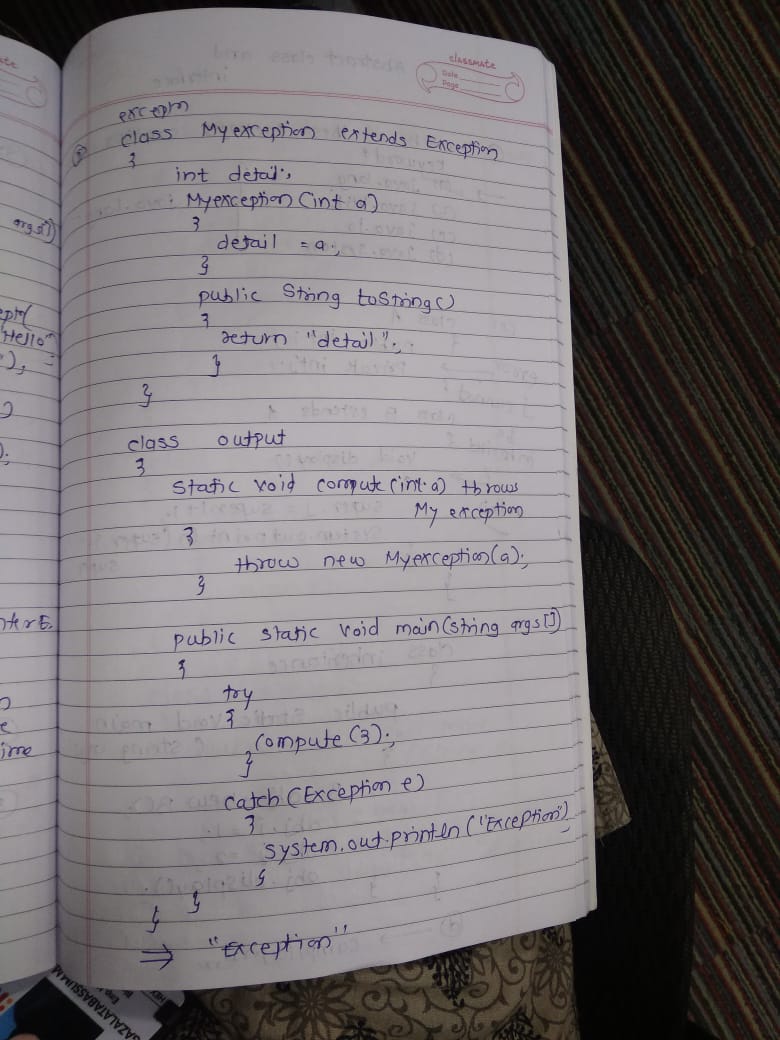 classmate
Date
Page
excepn
class Myexception extends Exception
{
int detail;
Myexception (int a)
{
detail = a;
}
public String toString()
{
return "detail";
}
}
class output
{
static void compute (int a) throws
My exception
{
throw new Myexception(a);
}
public static void main(string args[])
{
try
{
compute (3);
}
catch (Exception e)
{
system.out.println ("Exception")
}
}
}
⇒ "Exception"
args[])
"Hello"